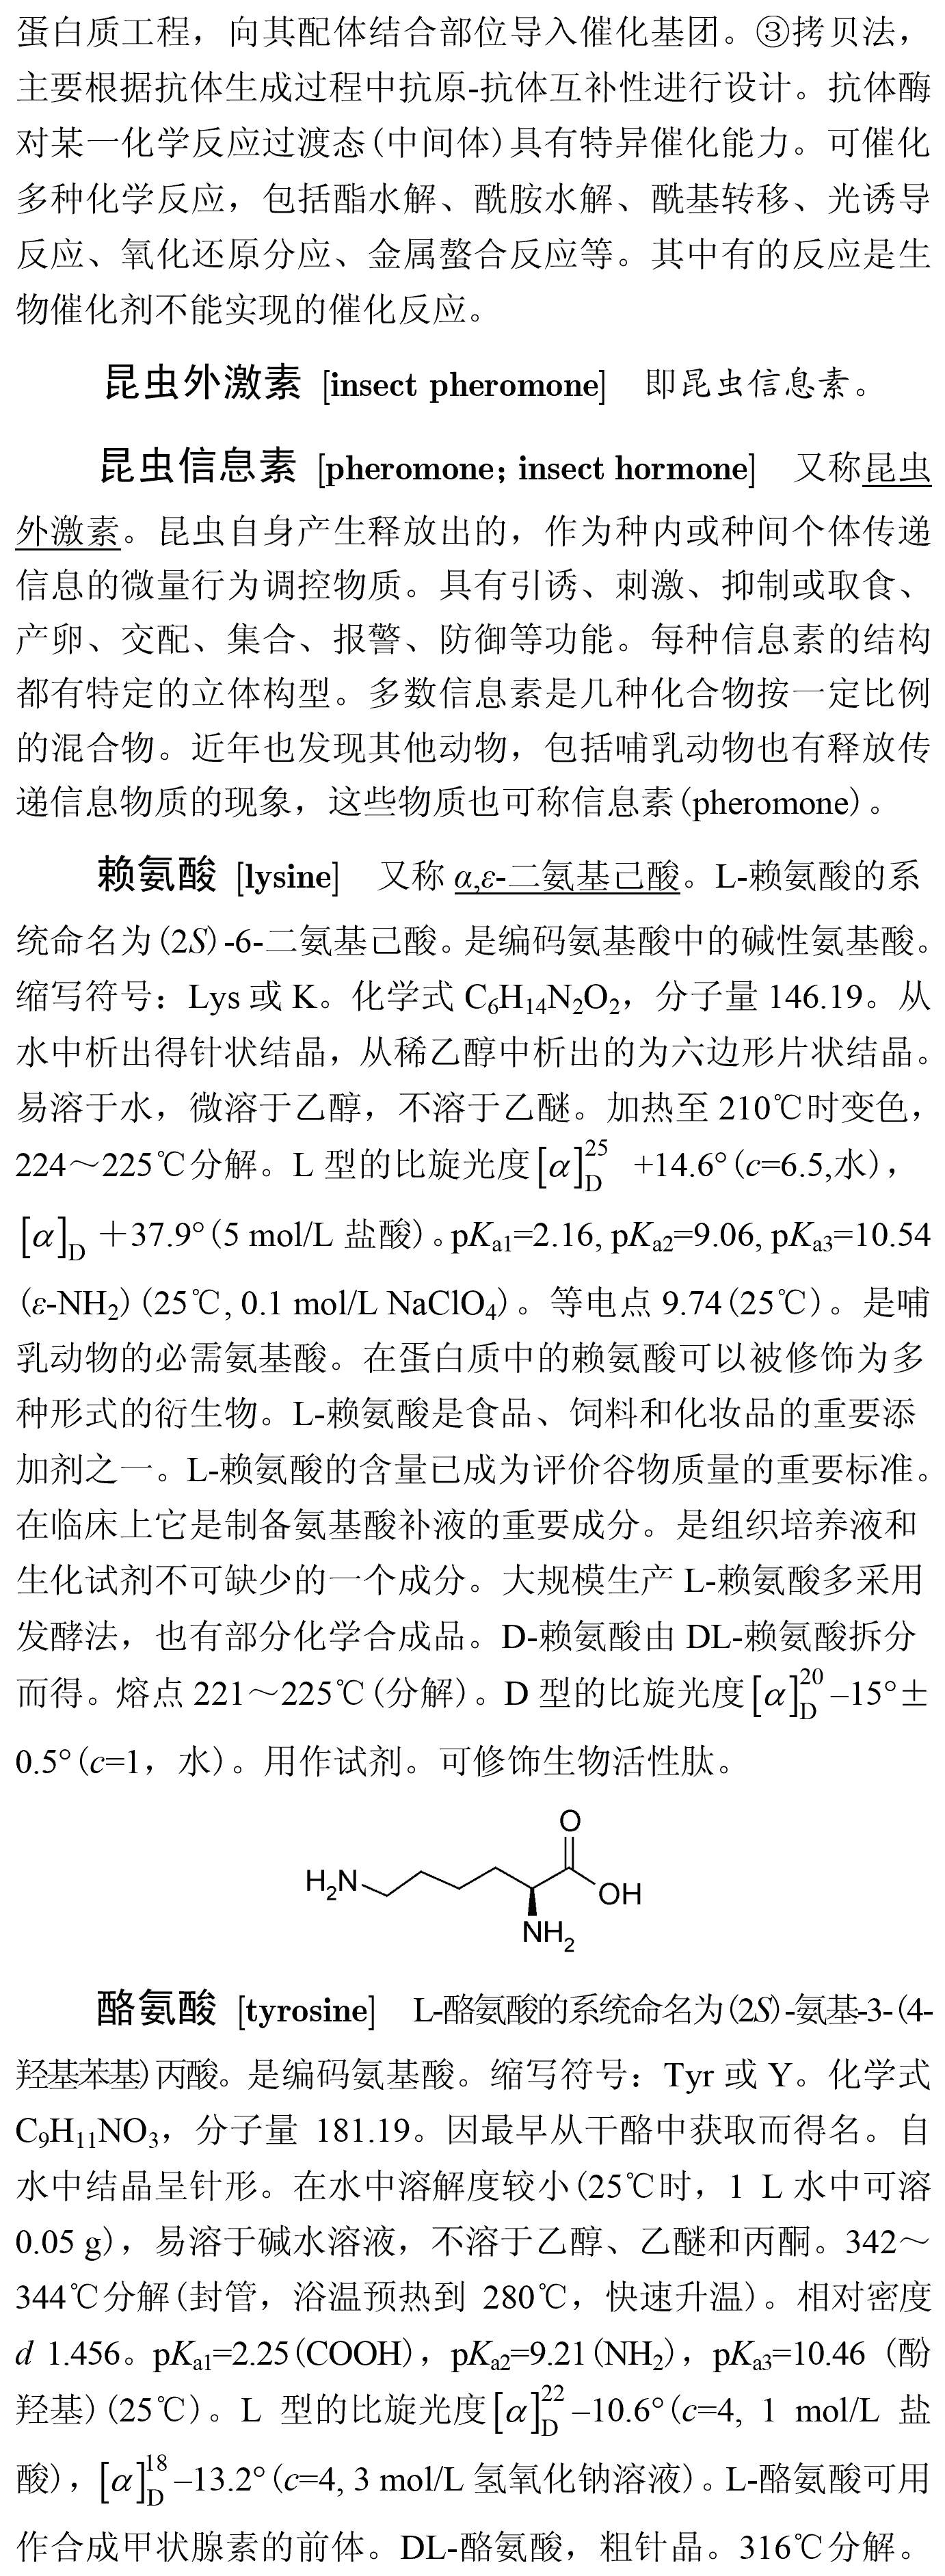 蛋白质工程，向其配体结合部位导入催化基团。③拷贝法，
主要根据抗体生成过程中抗原-抗体互补性进行设计。抗体酶
对某一化学反应过渡态(中间体)具有特异催化能力。可催化
多种化学反应，包括酯水解、酰胺水解、酰基转移、光诱导
反应、氧化还原分应、金属螯合反应等。其中有的反应是生
物催化剂不能实现的催化反应。
昆虫外激素 [insect pheromone] 即昆虫信息素。
昆虫信息素 [pheromone; insect hormone] 又称昆虫
外激素。昆虫自身产生释放出的，作为种内或种间个体传递
信息的微量行为调控物质。具有引诱、刺激、抑制或取食、
产卵、交配、集合、报警、防御等功能。每种信息素的结构
都有特定的立体构型。多数信息素是几种化合物按一定比例
的混合物。近年也发现其他动物，包括哺乳动物也有释放传
递信息物质的现象，这些物质也可称信息素(pheromone)。
赖氨酸 [lysine] 又称 α,ε-二氨基己酸。L-赖氨酸的系
统命名为(2S)-6-二氨基己酸。是编码氨基酸中的碱性氨基酸。
缩写符号：Lys 或 K。化学式 C₆H₁₄N₂O₂，分子量 146.19。从
水中析出得针状结晶，从稀乙醇中析出的为六边形片状结晶。
易溶于水，微溶于乙醇，不溶于乙醚。加热至 210℃时变色，
224～225℃分解。L 型的比旋光度[α]D25 +14.6°(c=6.5,水)，
[α]D ＋37.9°(5 mol/L 盐酸)。pKa1=2.16, pKa2=9.06, pKa3=10.54
(ε-NH₂)(25℃, 0.1 mol/L NaClO₄)。等电点 9.74(25℃)。是哺
乳动物的必需氨基酸。在蛋白质中的赖氨酸可以被修饰为多
种形式的衍生物。L-赖氨酸是食品、饲料和化妆品的重要添
加剂之一。L-赖氨酸的含量已成为评价谷物质量的重要标准。
在临床上它是制备氨基酸补液的重要成分。是组织培养液和
生化试剂不可缺少的一个成分。大规模生产 L-赖氨酸多采用
发酵法，也有部分化学合成品。D-赖氨酸由 DL-赖氨酸拆分
而得。熔点 221～225℃(分解)。D 型的比旋光度[α]D20 –15°±
0.5°(c=1，水)。用作试剂。可修饰生物活性肽。
O
H₂N
OH
NH₂
酪氨酸 [tyrosine] L-酪氨酸的系统命名为(2S)-氨基-3-(4-
羟基苯基)丙酸。是编码氨基酸。缩写符号：Tyr 或 Y。化学式
C₉H₁₁NO₃，分子量 181.19。因最早从干酪中获取而得名。自
水中结晶呈针形。在水中溶解度较小(25℃时，1 L 水中可溶
0.05 g)，易溶于碱水溶液，不溶于乙醇、乙醚和丙酮。342～
344℃分解(封管，浴温预热到 280℃，快速升温)。相对密度
d 1.456。pKa1=2.25(COOH)，pKa2=9.21(NH₂)，pKa3=10.46 (酚
羟基)(25℃)。L 型的比旋光度[α]D22 –10.6°(c=4, 1 mol/L 盐
酸)，[α]D18 –13.2°(c=4, 3 mol/L 氢氧化钠溶液)。L-酪氨酸可用
作合成甲状腺素的前体。DL-酪氨酸，粗针晶。316℃分解。